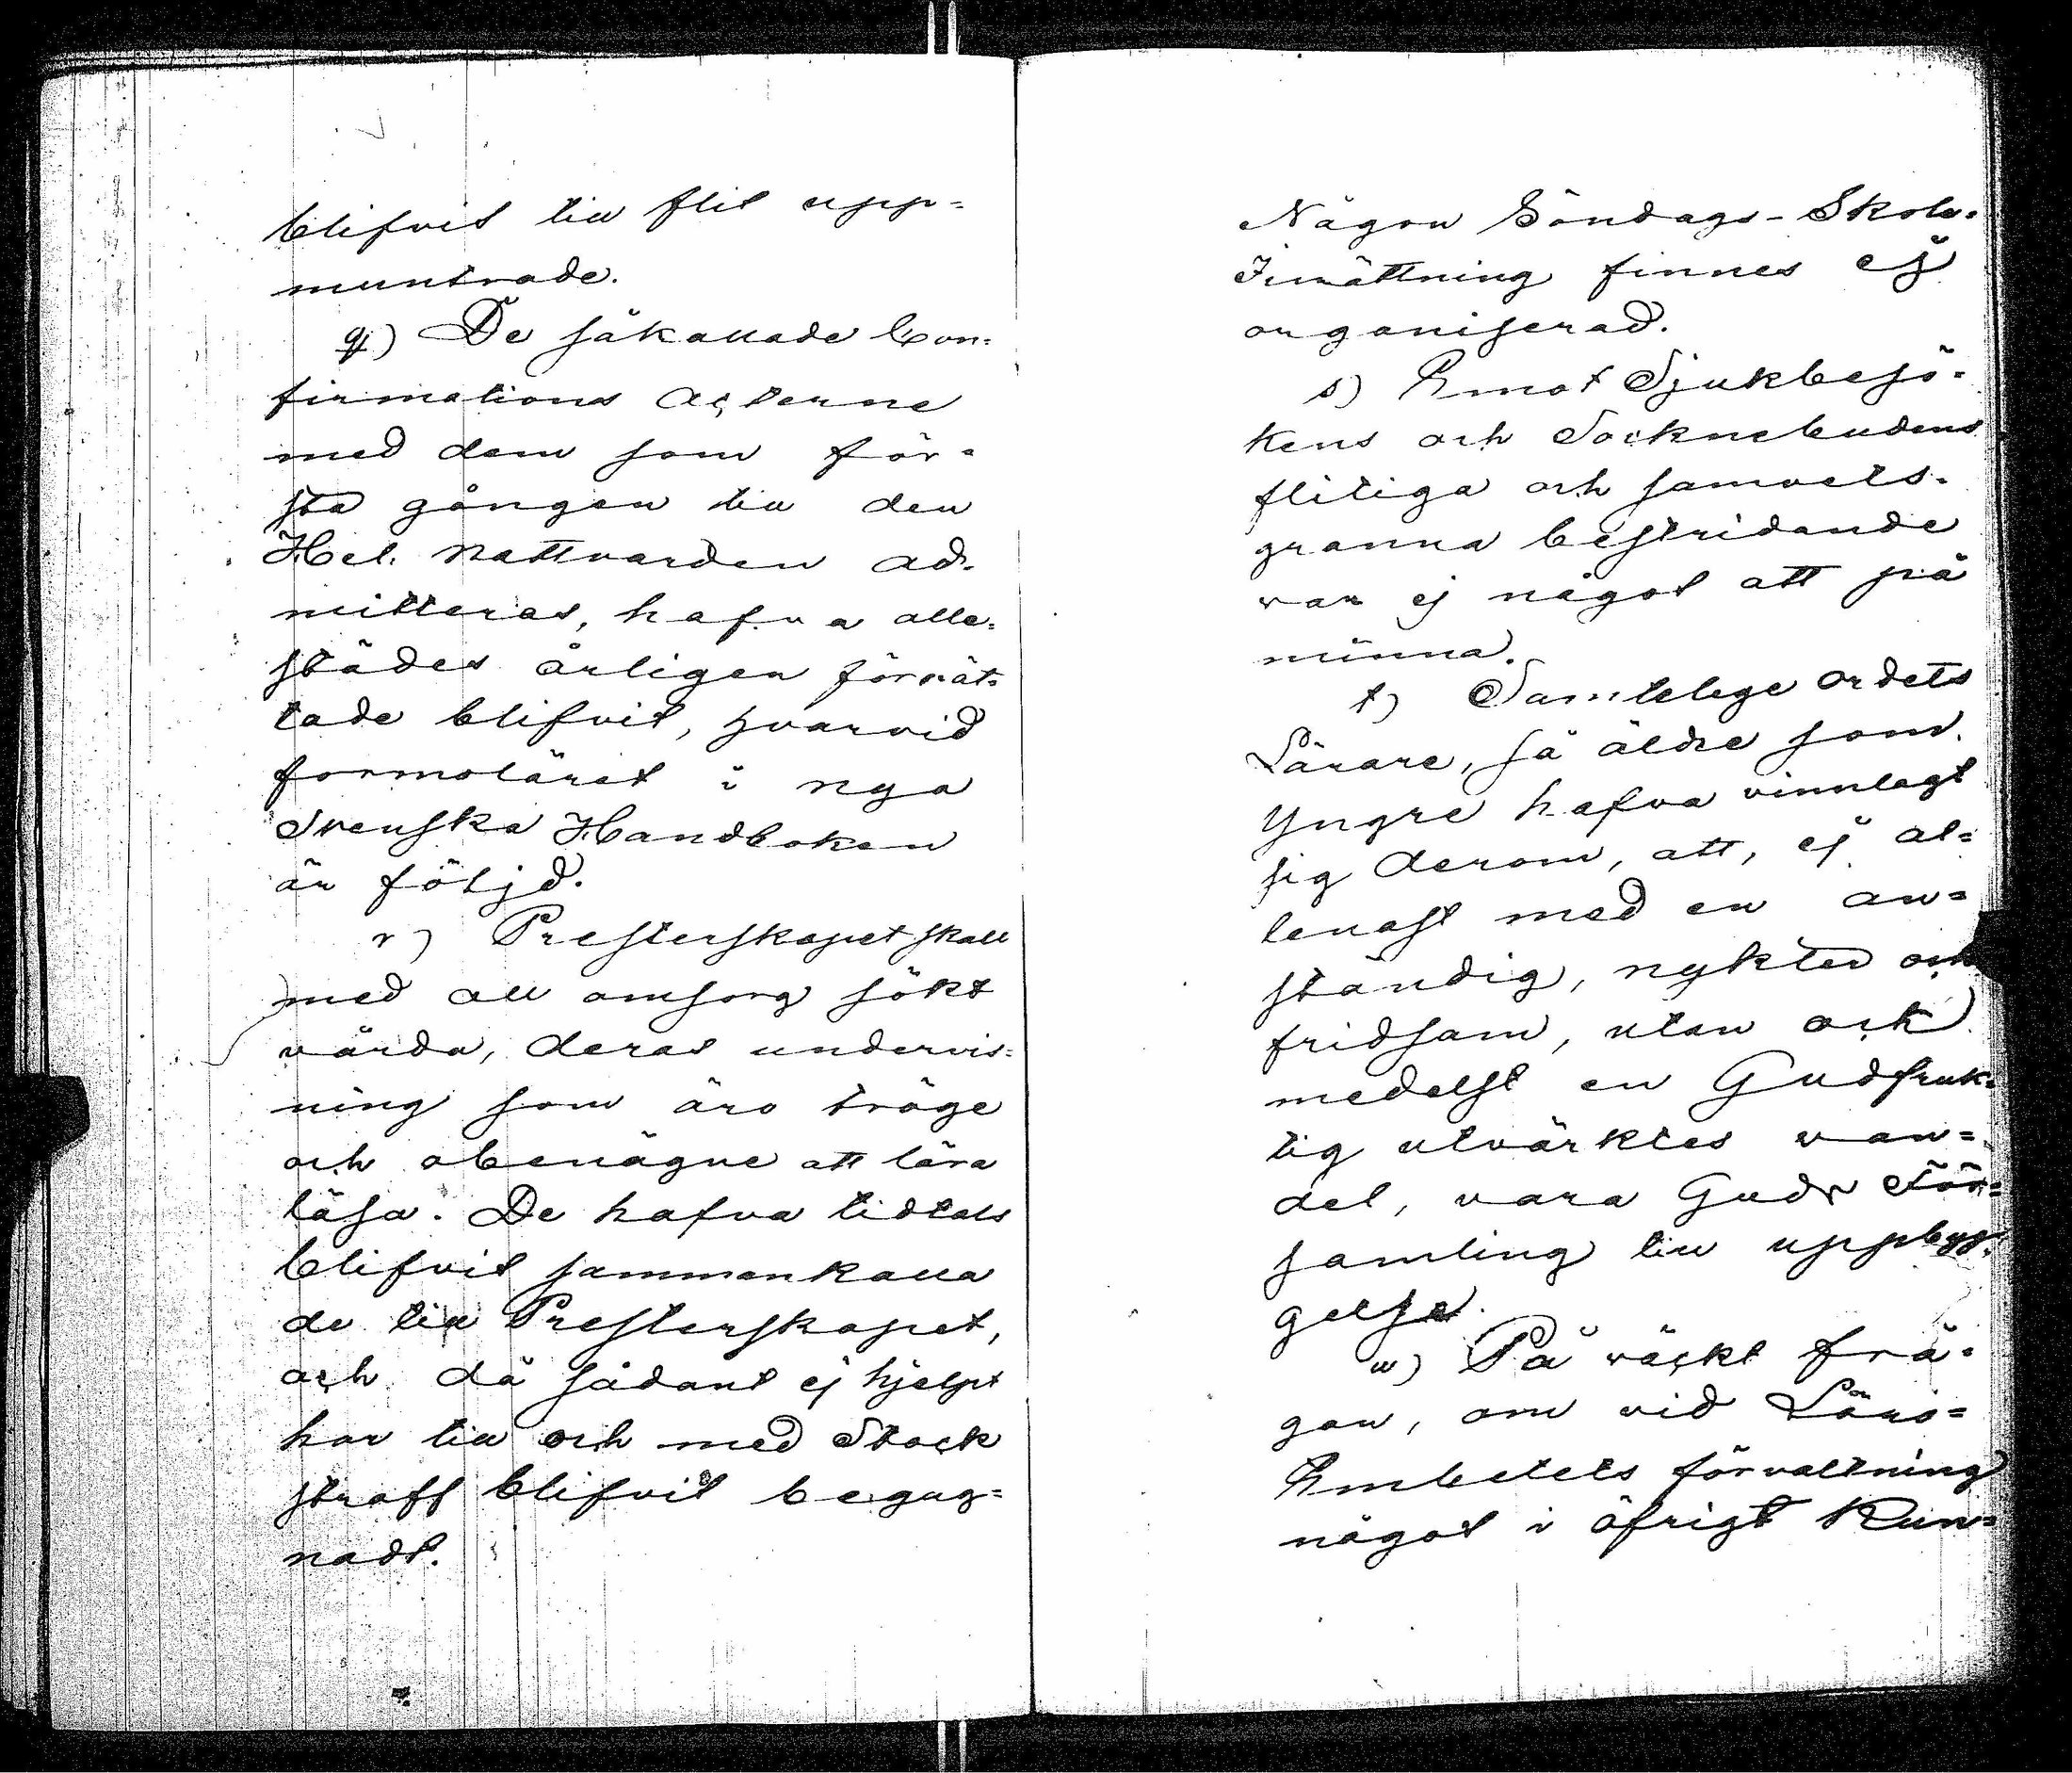 blifvit till flit upp=
muntrade.
q) De såkallade Con=
firmations Acterne
med dem som för=
sta gången till den
Hel. Nattvarden ad=
mitteras, hafva alle=
städes årligen förrät=
tade blifvit, hvarvid
formoläret i nya
Svenska Handboken
är följd.
r) Presterskapet skall
med all omsorg sökt
vårda, deras undervis=
ning som äro tröge
och obenägne att lära
läsa. De hafva tidtals
blifvit sammankalla
de till Presterskapet,
och då sådant ej hjelpt
har till och med Stock
straff blifvit begag=
nadt.
Någon Söndags-Skole=
Inrättning finnes ej
organiserad.
s) Emot Sjukbesö=
kens och Socknebudens
flitiga och samvets=
granna bestridande
var ej något att på
minna.
t) Samtelege ordets
Lärare, så äldre som
Yngre hafva vinnlagt
sig derom, att, ej al=
lenast med en an=
ständig, nykter och
fridsam, utan ock
medelst en Gudfruk=
tig utvärktes van=
del, vara Guds För=
samling till uppbyg=
gelse.
u) På väckt frå=
gan, om vid Läro=
Embetets förvaltning
något i öfrigt kun=